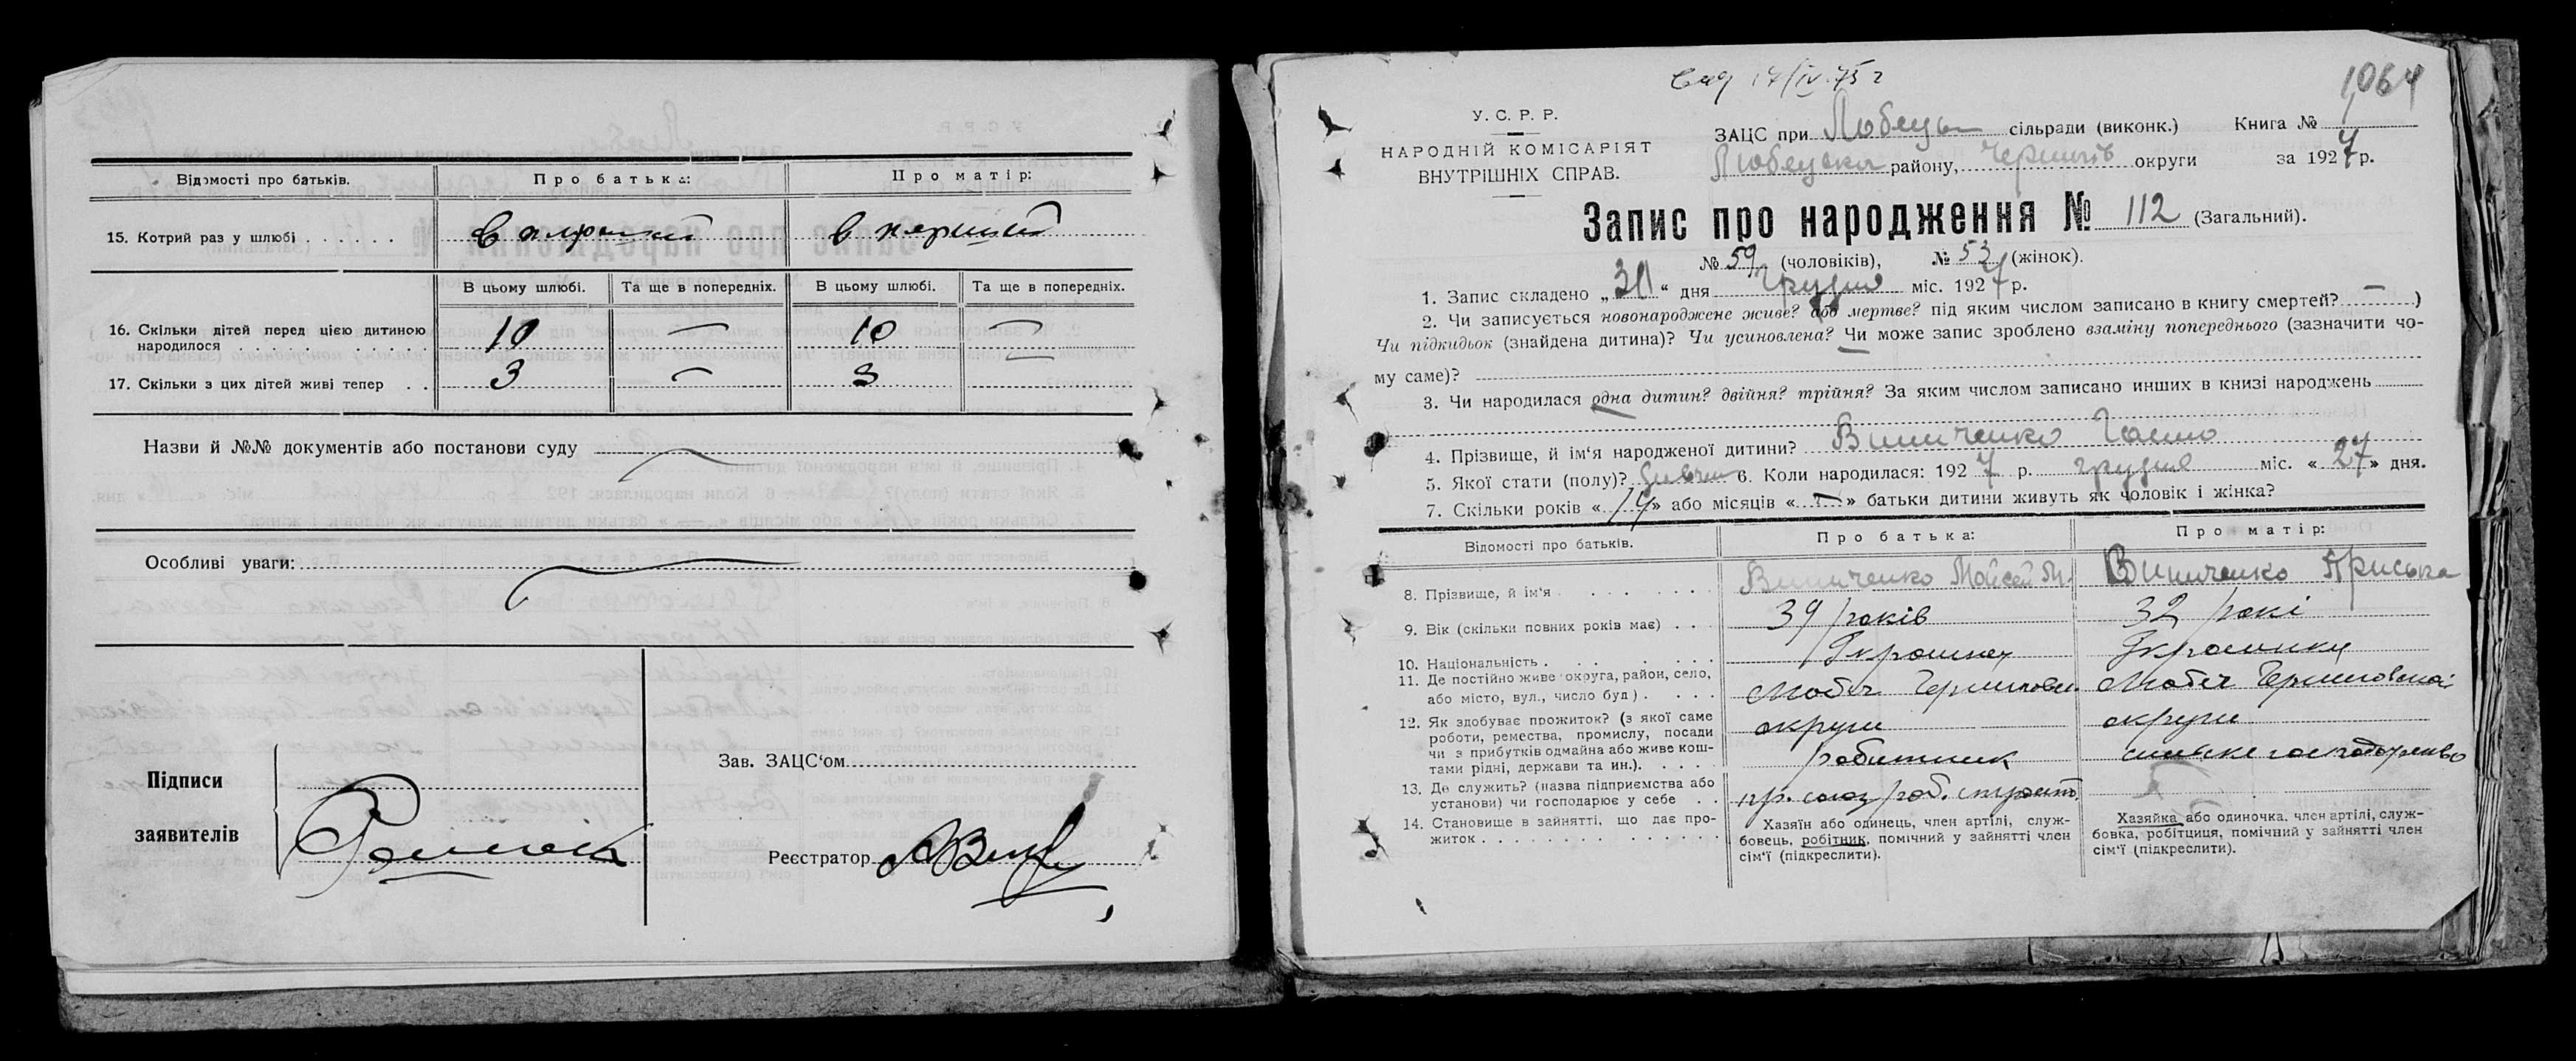 Відомості про батьків.
Про батька:
Про матір:
15. Котрий раз у шлюбі . . . . . .
в перший
в перший
В цьому шлюбі.
Та ще в попередніх.
В цьому шлюбі.
Та ще в попередніх.
16. Скільки дітей перед цією дитиною
народилося . . . . . . . . . .
10
—
10
—
17. Скільки з цих дітей живі тепер . .
3
—
3
—
Назви й №№ документів або постанови суду
Особливі уваги:
Підписи
заявителів
Зав. ЗАЦС'ом
Реєстратор
17/IV.75 г
1064
У. С. Р. Р.
НАРОДНІЙ КОМІСАРІЯТ
ВНУТРІШНІХ СПРАВ.
ЗАЦС при Любецьк сільради (виконк.) Книга №
Любецьк району, Чернігів округи за 1927 р.
Запис про народження № 112 (Загальний).
№ 59 (чоловіків), № 53 (жінок).
1. Запис складено „30“ дня грудня міс. 1927 р.
2. Чи записується новонароджене живе? або мертве? під яким числом записано в книгу смертей? — )
Чи підкидьок (знайдена дитина)? Чи усиновлена? Чи може запис зроблено взаміну попереднього (зазначити чо-
му саме)?
3. Чи народилася одна дитин? двійня? трійня? За яким числом записано инших в книзі народжень
4. Прізвище, й ім'я народженої дитини? Винниченко
5. Якої стати (полу)? 6. Коли народилася: 1927 р. грудня міс. «27» дня.
7. Скільки років «14» або місяців «—» батьки дитини живуть як чоловік і жінка?
Відомості про батьків.
Про батька:
Про матір:
8. Прізвище, й ім'я . . . . . . .
Винниченко Мойсей М.
Винниченко Приська
9. Вік (скільки повних років має) . .
39 років
32 рокі
10. Національність . . . . . . .
Українец
Українка
11. Де постійно живе округа, район, село,
або місто, вул., число буд) . . . .
Любеч Чернігівськ.
округи
Любеч Чернігівської
округи
12. Як здобуває прожиток? (з якої саме
роботи, ремества, промислу, посади
чи з прибутків одмайна або живе кош-
тами рідні, держави та ин.). . . . .
робітник
сільське господарство
13. Де служить? (назва підприємства або
установи) чи господарює у себе . .
пр. союз роб.
14. Становище в зайнятті, що дає про-
житок . . . . . . . . . . . . .
Хазяїн або одинець, член артілі, служ-
бовець, робітник, помічний у зайнятті член
сім'ї (підкреслити).
Хазяйка або одиночка, член артілі, служ-
бовка, робітниця, помічний у зайнятті член
сім'ї (підкреслити).